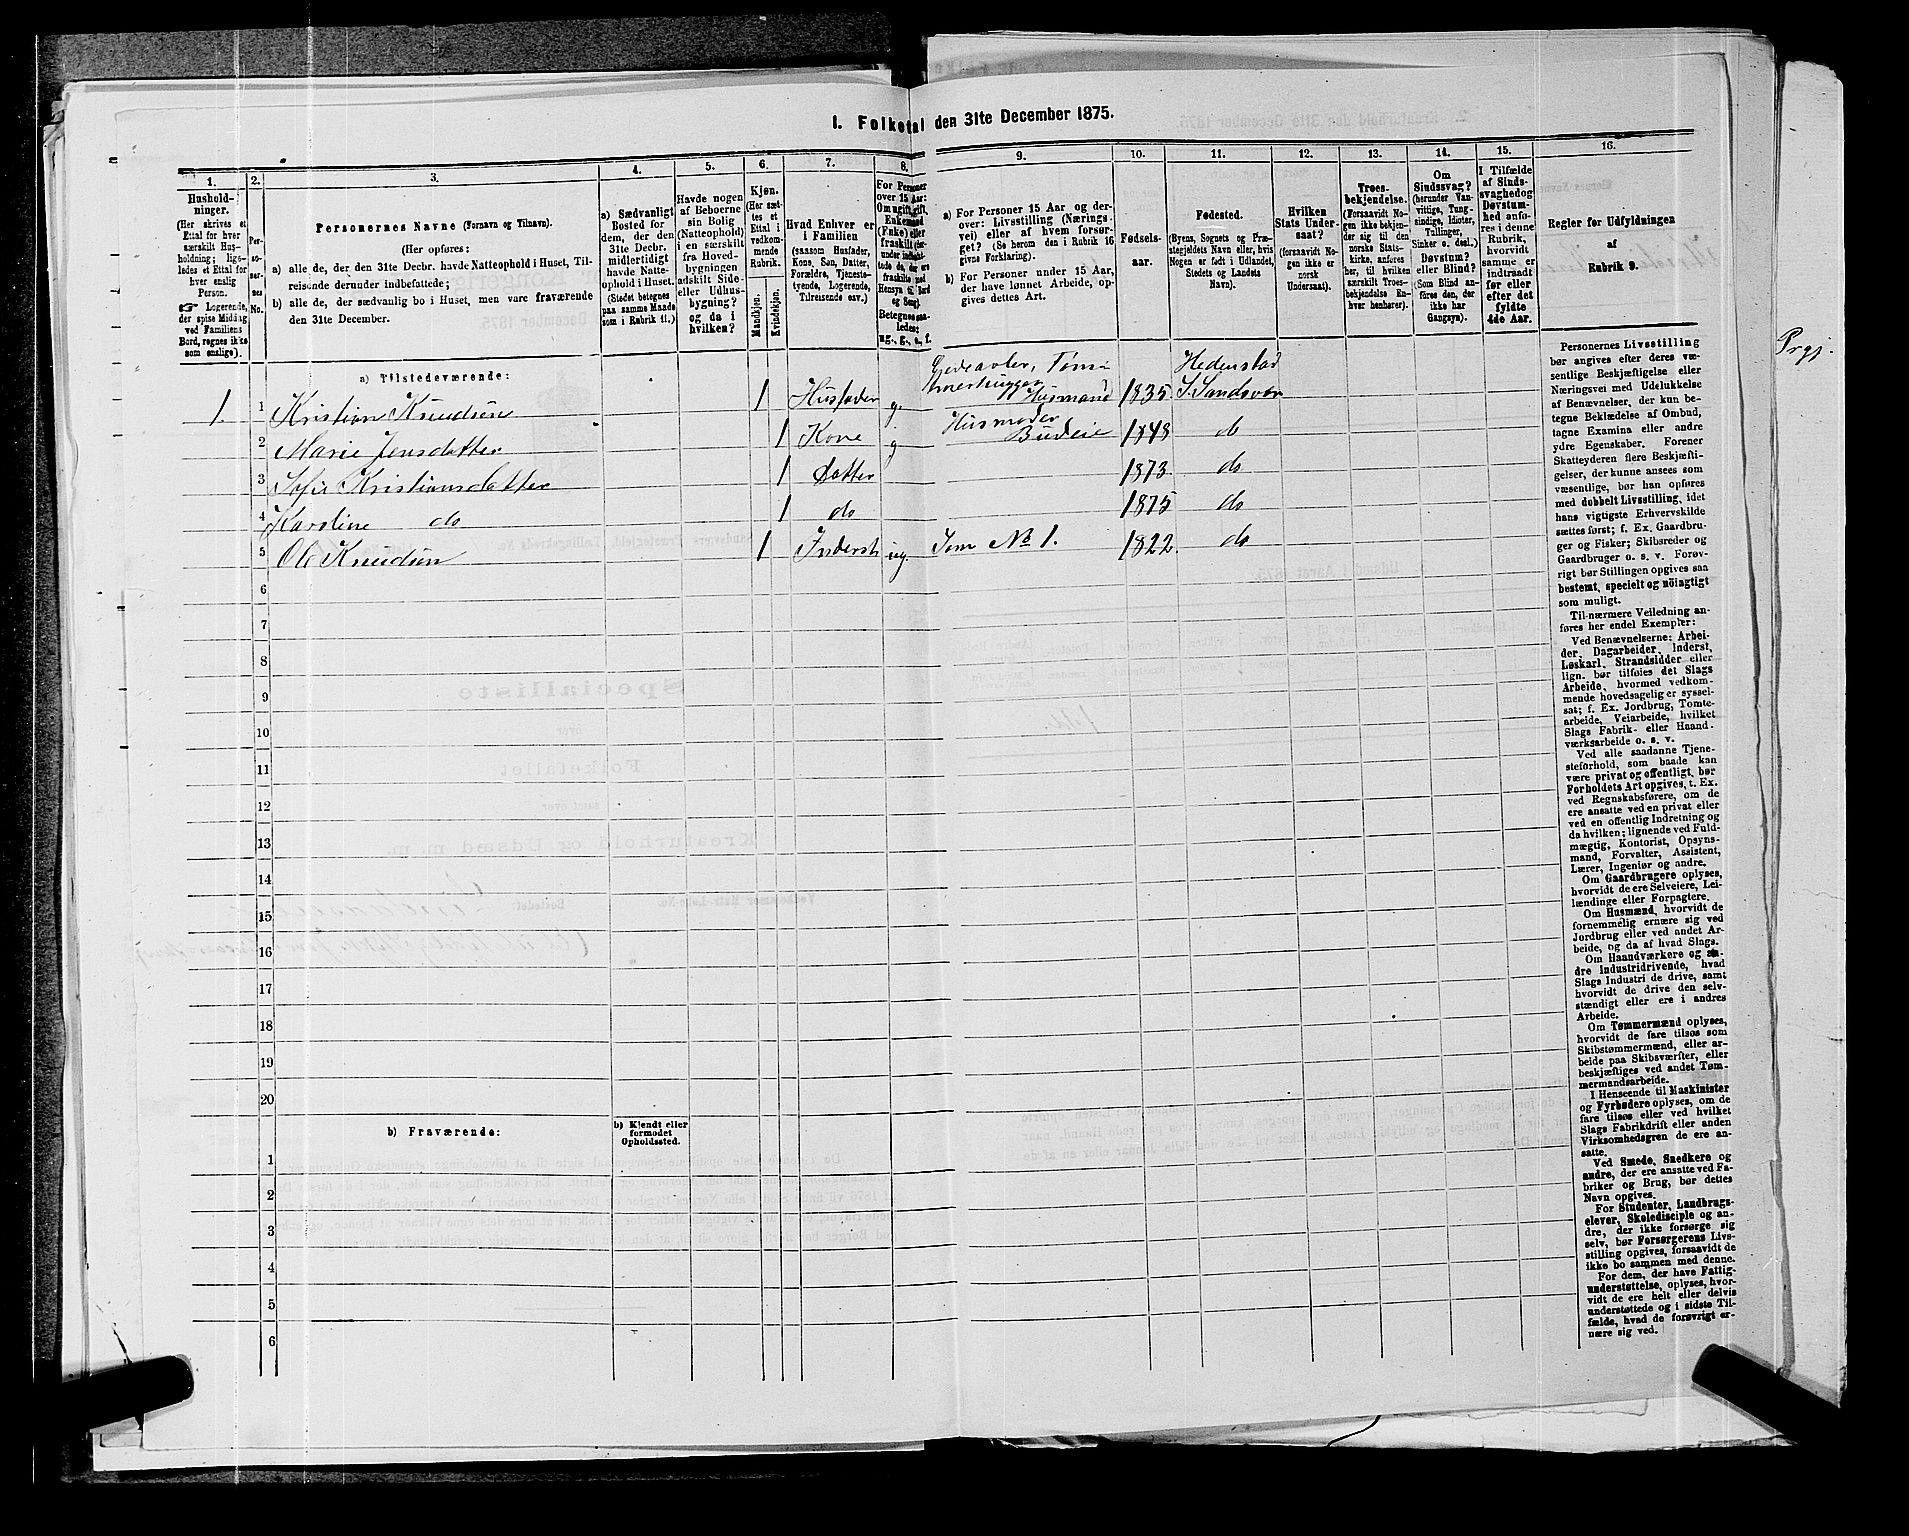 1. Folketal den 31te December 1875.
1.
Husholdninger.
(Her skrives et
Ettal for hver
særskilt Husholdning;
ligeledes et Ettal for
hver enslig
Person.
☞ Logerende,
der spise Middag
ved Familiens
Bord, regnes ikke
som enslige).
2.
Personernes
No.
3.
Personernes Navne (Fornavn og Tilnavn).
(Her opføres:
a) alle de, der den 31te Decbr. havde Natteophold i Huset, Tilreisende
derunder indbefattede;
b) alle de, der sædvanlig bo i Huset, men vare fraværende
den 31te December.
4.
a) Sædvanligt
Bosted for
dem, der den
31te Decbr.
midlertidigt
havde Natteophold
i Huset.
(Stedet betegnes
paa samme Maade
som i Rubrik 11.)
5.
Havde nogen
af Beboerne
sin Bolig
(Natteophold)
i en særskilt
fra Hovedbygningen
adskilt Side-
eller Udhusbygning?
og da i
hvilken?
6.
Kjøn.
(Her sættes
et
Ettal i
vedkommende
Rubrik.
Mandkjøn.
Kvindekjøn.
7.
Hvad Enhver er
i Familien
(saasom Husfader,
Kone, Søn, Datter,
Forældre, Tjenestetyende,
Logerende,
Tilreisende osv.)
8.
For Personer
over 15 Aar:
Om ugift, gift,
Enkemand
(Enke) eller
fraskilt
Betegnes saaledes:
ug., g., e., f.
9.
a) For Personer 15 Aar og derover:
Livsstilling (Næringsvei)
eller af hvem forsørget?
(Se herom den i Rubrik 16
givne Forklaring).
b) For Personer under 15 Aar,
der have lønnet Arbeide, opgives
dettes Art.
10.
Fødselsaar.
11.
Fødested.
(Byens, Sognets og Præstegjeldets
Navn eller, hvis
Nogen er født i Udlandet,
Stedets og Landets
Navn).
12.
Hvilken
Stats Undersaat?
(forsaavidt Nogen
ikke er
norsk
Undersaat).
13.
Troesbekjendelse.
(Forsaavidt Nogen
ikke bekjender
sig til den
norske Statskirke,
anføres
her, til hvilken
særskilt Troesbekjendelse
Enhver
henhører).
14.
Om
Sindssvag?
(herunder Vanvittige,
Tungsindige,
Idioter,
Tullinger,
Sinker o. desl.)
Døvstum?
eller Blind?
(Som Blind anføres
den, der
ikke har
Gangsyn).
15.
I Tilfælde
af Sindssvaghed
og
Døvstumhed
anføres
i denne
Rubrik,
hvorvidt
samme er
indtraadt
før eller
efter det
fyldte
4de Aar.
16.
Regler for Udfyldningen
af
Rubrik 9.
a) Tilstedeværende:
1. 1 Kristian Knudsen 1 Husfader g. Tøm- merhugger Husmand 1835 Hedenstad S. Sandsver
2 Marie Jensdatter 1 Kone g Husmoder Budeie 1848 do
3 Sofie Kristiansdatter 1 Datter 1873 do
4 Karoline do 1 do 1875 do
5 Ole Knudsen 1 Inderst ug. Som No 1. 1822 do
6
7
8
9
10
11
12
13
14
15
16
17
18
19
20
b) Fraværende:
b) Kjendt eller
formodet
Opholdssted.
1
2
3
4
5
6
Personernes Livsstilling
bør angives efter deres væsentlige
Beskjæftigelse eller
Næringsvei med Udelukkelse
af Benævnelser, der kun betegne
Beklædelse af Ombud,
tagne Examina eller andre
ydre Egenskaber. Forener
Skatteyderen flere Beskjæftigelser,
der kunne ansees som
væsentlige, bør han opføres
med dobbelt Livsstilling, idet
hans vigtigste Erhvervskilde
sættes først; f. Ex. Gaardbruger
og Fisker; Skibsreder og
Gaardbruger o. s. v. Forøvrigt
bør Stillingen opgives saa
bestemt, specielt og nöiagtigt
som muligt.
Til nærmere Veiledning anføres
her endel Exempler:
Ved Benævnelserne: Arbeider,
Dagarbeider, Inderst,
Løskarl, Strandsidder eller
lign. bør tilføies det Slags
Arbeide, hvormed vedkommende
hovedsagelig er sysselsat;
f. Ex. Jordbrug, Tomtearbeide,
Veiarbeide, hvilket
Slags Fabrik- eller Haandværksarbeide
o. s. v.
Ved alle saadanne Tjenesteforhold,
som baade kan
være privat og offentligt, bør
Forholdets Art opgives, t. Ex.
ved Regnskabsførere, om de
ere ansatte ved en privat eller
ved en offentlig Indretning og
da hvilken; lignende ved Fuldmægtig,
Kontorist, Opsynsmand,
Forvalter, Assistent,
Lærer, Ingeniør og andre.
Om Gaardbrugere oplyses,
hvorvidt de ere Selveiere, Leilændinge
eller Forpagtere.
Om Husmænd, hvorvidt de
fornemmelig ernære sig ved
Jordbrug eller ved andet Arbeide,
og da af hvad Slags.
Om Haandværkere og andre
Industridrivende, hvad
Slags Industri de drive, samt
hvorvidt de drive den selvstændigt
eller ere i andres
Arbeide.
Om Tømmermænd oplyses,
hvorvidt de fare tilsøs som
Skibstømmermænd, eller arbeide
paa Skibsværfter, eller
beskjæftiges ved andet Tømmermandsarbeide.
I Henseende til Maskinister
og Fyrbødere oplyses, om de
fare tilsøs eller ved hvilket
Slags Fabrikdrift eller anden
Virksomhedsgren de ere ansatte.
Ved Smede, Snedkere og
andre, der ere ansatte ved Fabriker
og Brug, bør dettes
Navn opgives.
For Studenter, Landbrugselever,
Skoledisciple og andre,
der ikke forsørge sig
selv, bør Forsørgerens Livsstilling
opgives, forsaavidt de
ikke bo sammen med denne.
For dem, der have Fattigunderstøttelse,
oplyses, hvorvidt
de ere helt eller delvis
understøttede og i sidste Tilfælde,
hvad de forøvrigt ernære
sig ved.